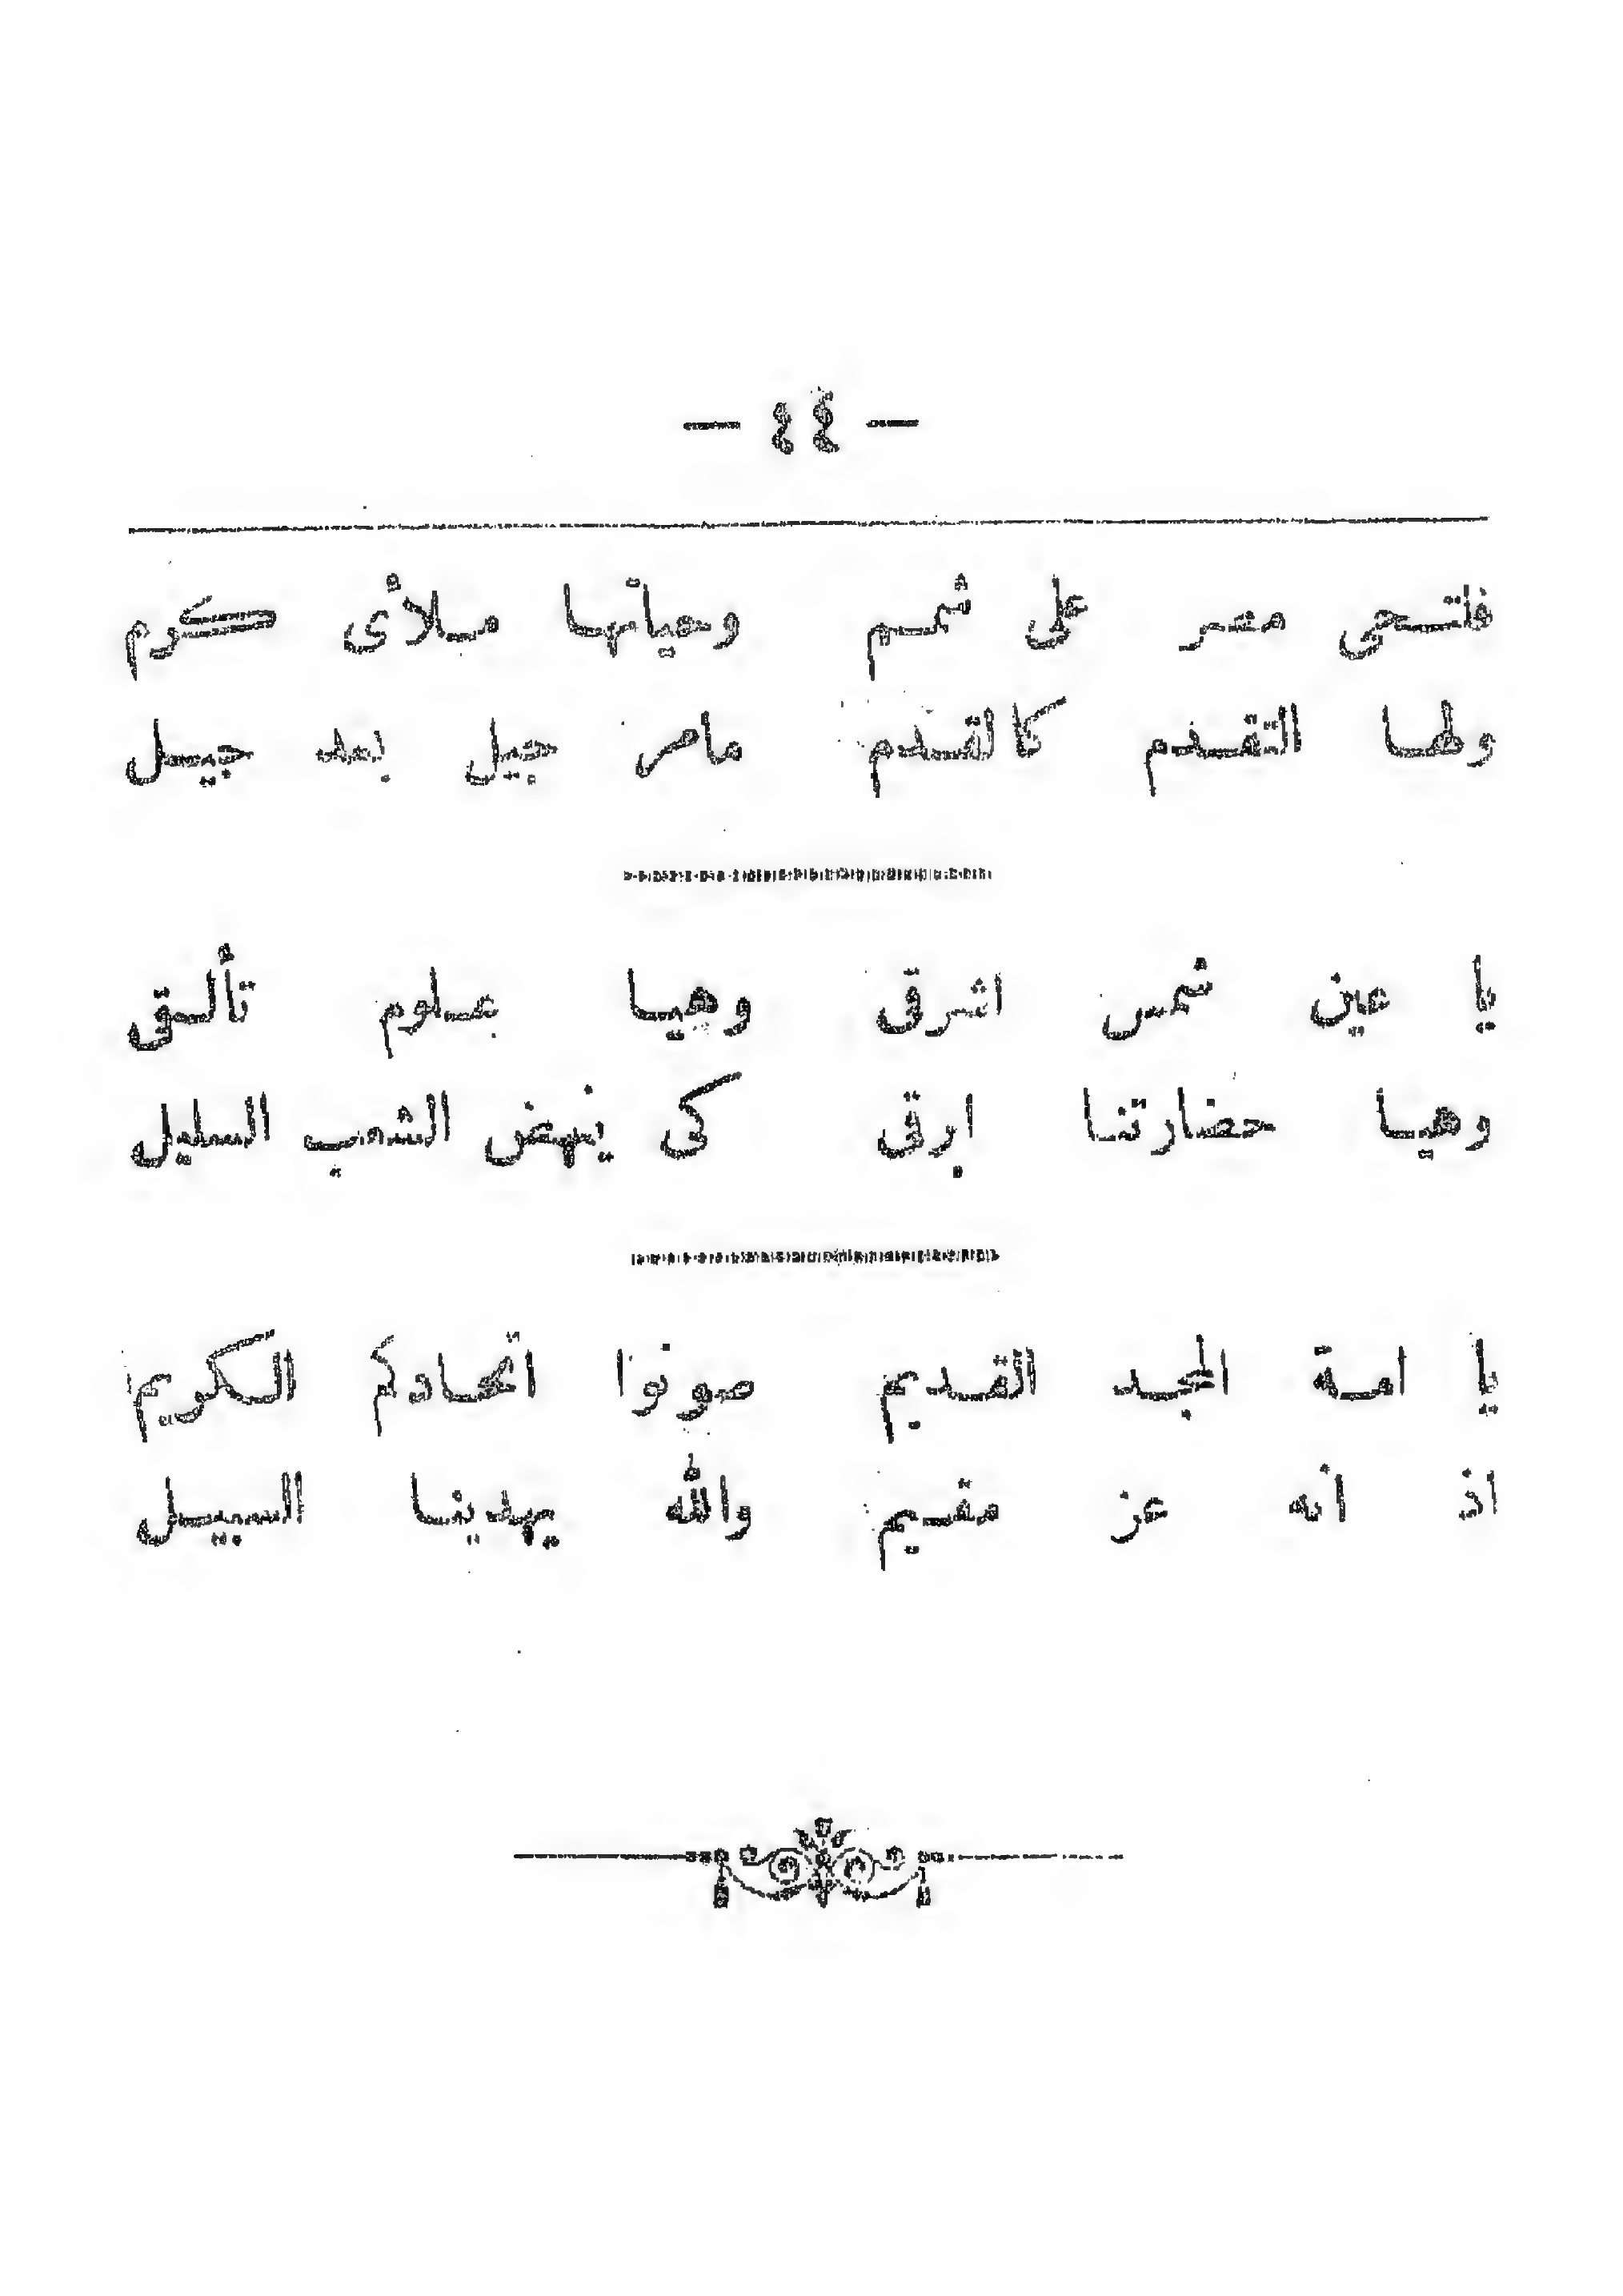 — ٤٤ —
فلتحي مصر على شمم وحياتها ملأى كرم
ولها التقدم كالقدم مامر جيل بعد جيل
يا عين شمس اشرق وهيا بعلوم تألق
وهيا حضارتنا ابرق كى ينهض الشعب السليل
يا امة المجد القديم صونوا اتحادكم الكريم
اذ أنه عز مقيم والله يهدينا السبيل